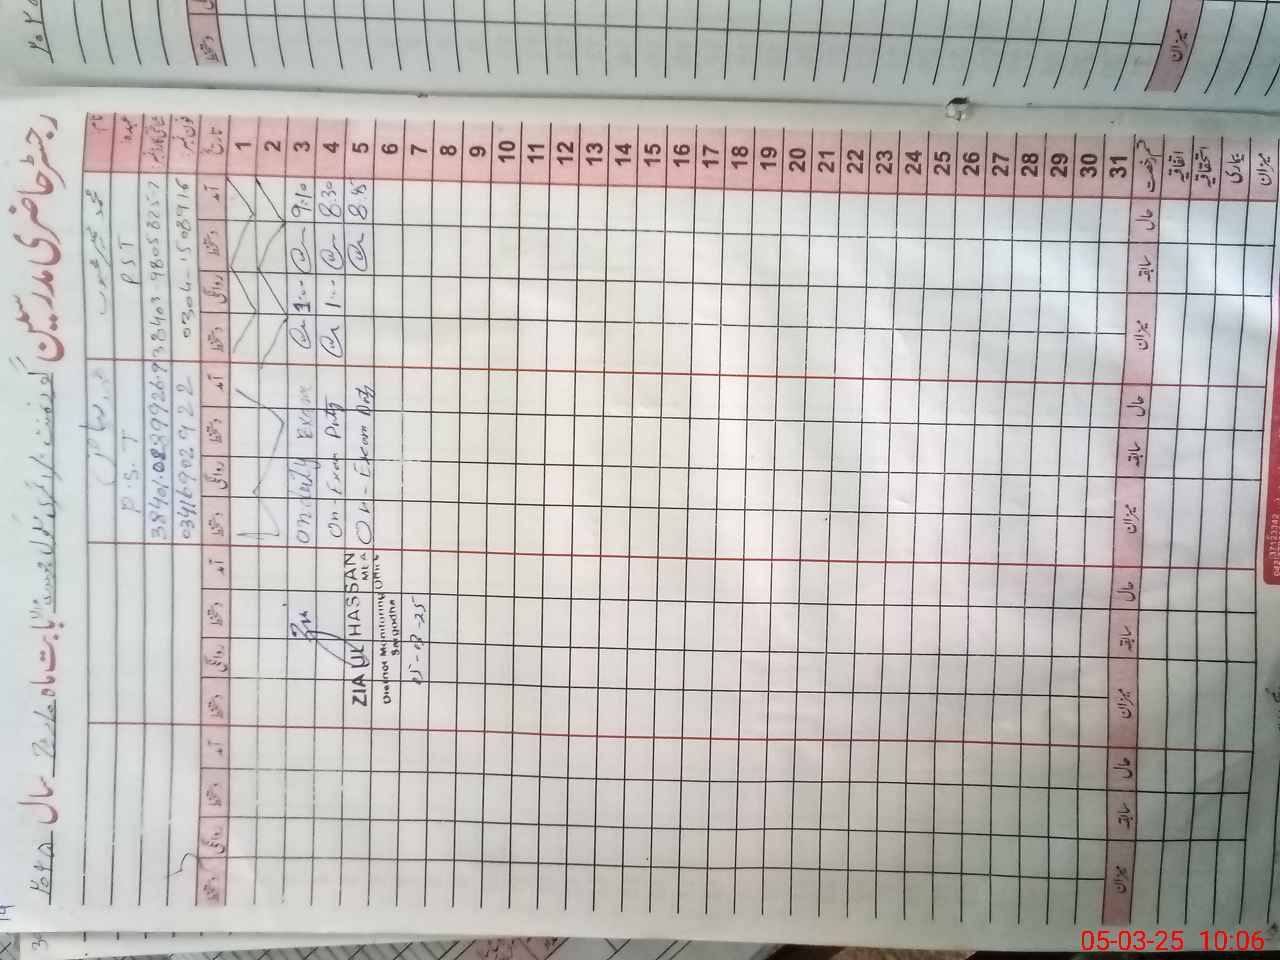 رجسٹر حاضری مدرسین گورنمنٹ بابت ماہ مارچ سال ۲۰۲۵
نام
عہدہ P S T P. S. T
38403-9805825-7 38401-0889926-9
فون نمبر 0304-1508716 03416902922
تاریخ آمد دستخط روانگی دستخط آمد دستخط روانگی دستخط آمد دستخط روانگی دستخط آمد دستخط روانگی دستخط
1
2
3 9:10 1:00 on duty Exam
4 8:30 1:00 On Exam Duty
5 8:45 On - Exam Duty ZIA UL HASSAN
MEA
6 District Monitoring Office
Sargodha
7 05-03-25
8
9
10
11
12
13
14
15
16
17
18
19
20
21
22
23
24
25
26
27
28
29
30
31
قسم رخصت حال سابقہ میزان حال سابقہ میزان حال سابقہ میزان حال سابقہ میزان
اتفاقیہ
استحقاقیہ
بیماری
میزان
میزان
05-03-25 10:06